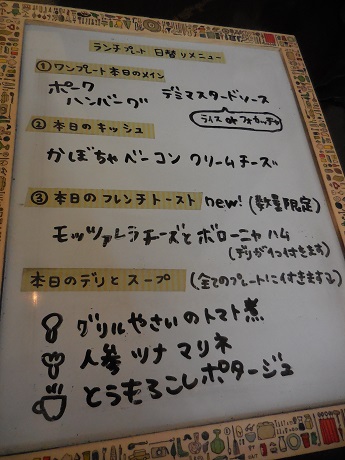 ランチプレート 日替りメニュー
①ワンプレート本日のメイン
ポーク
ハンバーグ デミマスタードソース
ライス or フォカッチャ
②本日のキッシュ
かぼちゃベーコン クリームチーズ
③本日のフレンチトースト new! (数量限定)
モッツァレラチーズとボローニャハム
(デリが1つ付きます)
本日のデリとスープ (全てのプレートに付きます)
グリルやさいのトマト煮
人参 ツナ マリネ
とうもろこしポタージュ